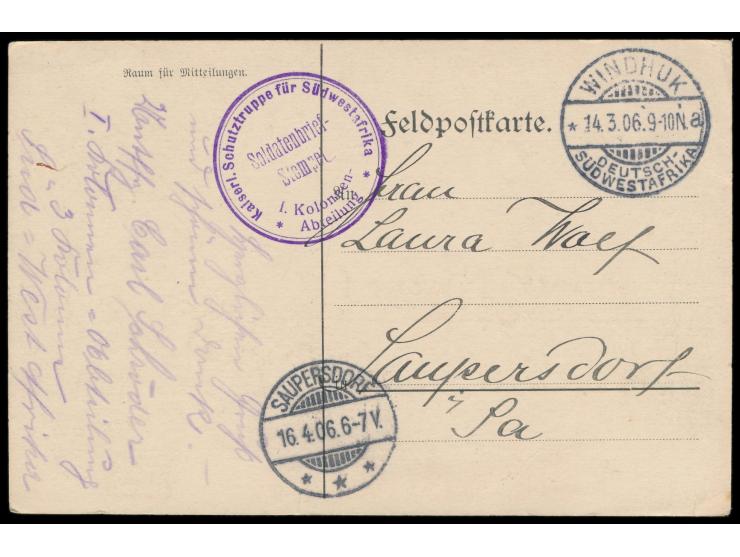 Raum für Mitteilungen.
Feldpostkarte.
WINDHUK
* 14.3.06.9-10N. a
DEUTSCH-
SÜDWESTAFRIKA
Kaiserl. Schutztruppe für Südwestafrika
Soldatenbrief-
Stempel
I. Kolonnen-
Abteilung
Frau
Laura Wolf
Saupersdorf
i/Sa
SAUPERSDORF
16.4.06.6-7V.
* * *
Herzlichen Gruß
und
Dank. –
Carl Schröder
I. Kolonnen = Abteilung
3 Kolonne
Süd = West Afrika